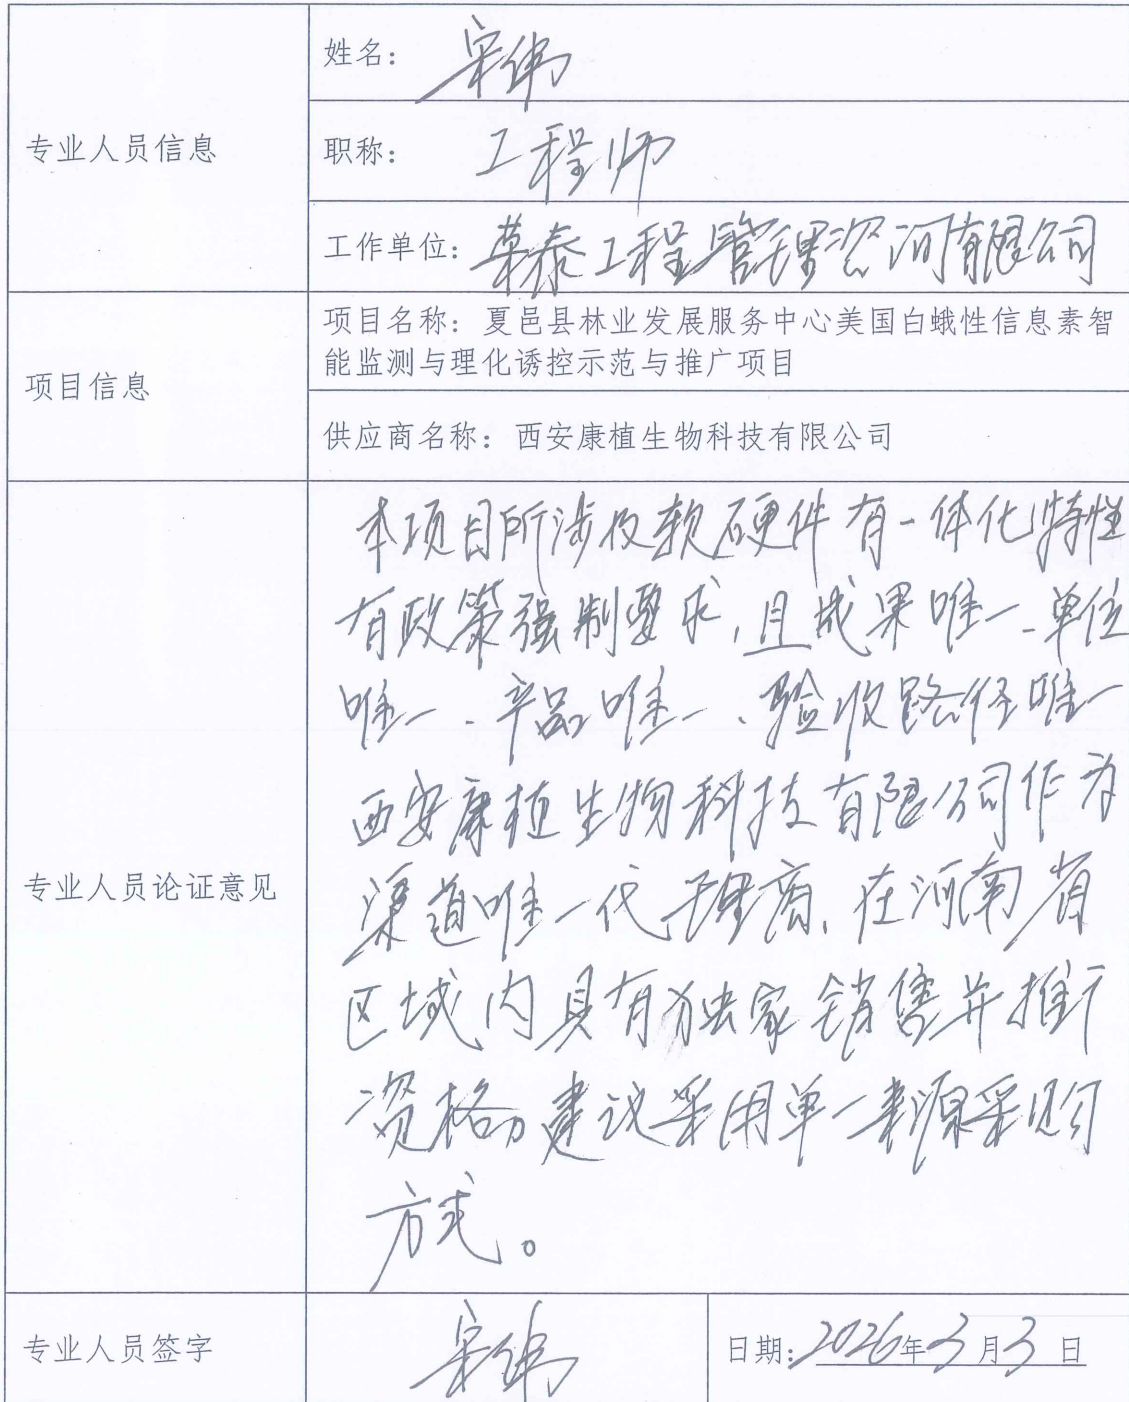 专业人员信息
姓名：宋伟
职称：工程师
工作单位：华泰工程管理咨询有限公司
项目信息
项目名称：夏邑县林业发展服务中心美国白蛾性信息素智
能监测与理化诱控示范与推广项目
供应商名称：西安康植生物科技有限公司
专业人员论证意见
本项目所涉及软硬件有一体化特性
有政策强制要求，且成果唯一、单位
唯一、产品唯一、验收路径唯一
西安康植生物科技有限公司作为
渠道唯一代理商，在河南省
区域内具有独家销售并推广
资格，建议采用单一来源采购
方式。
专业人员签字
宋伟
日期：2026年3月3日